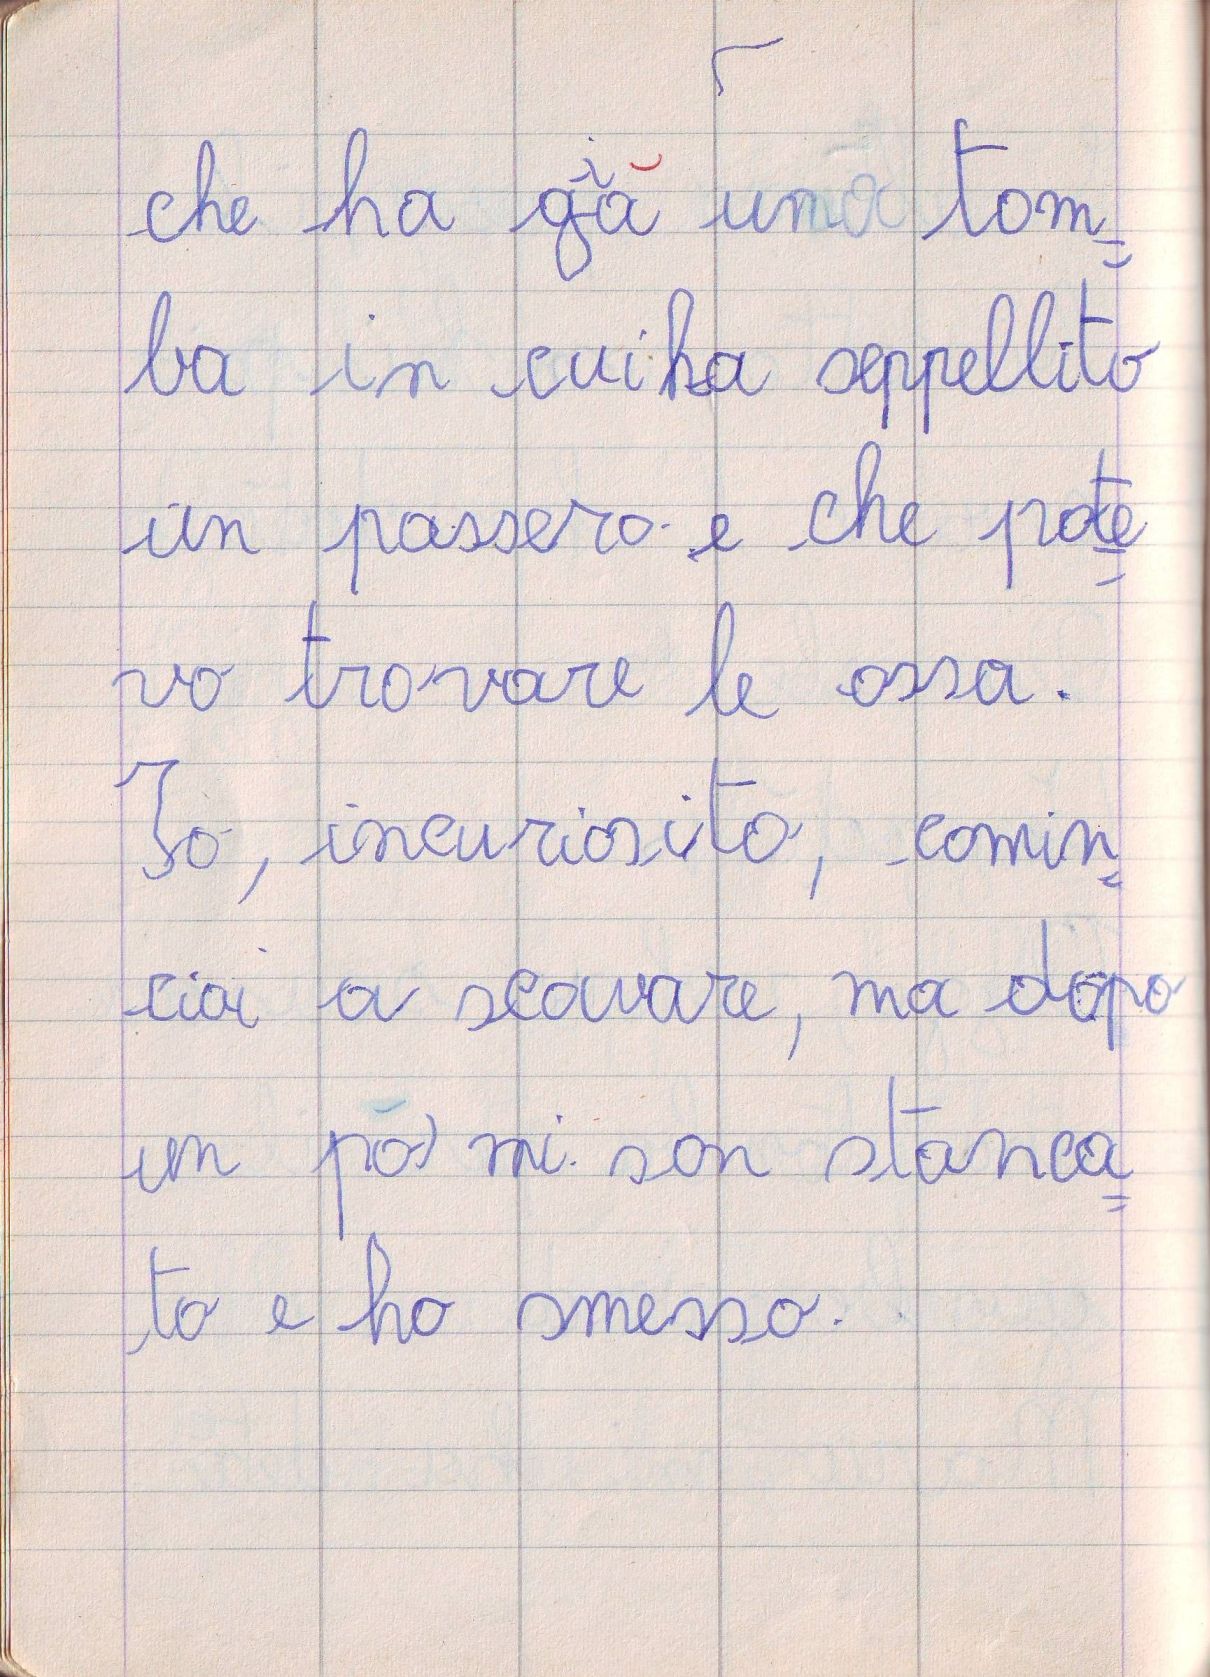 che ha già una tom=
ba in cui ha seppellito
un passero e che pote=
vo trovare le ossa.
Io, incuriosito, comin=
ciai a scavare, ma dopo
un pò mi son stanca=
to e ho smesso.